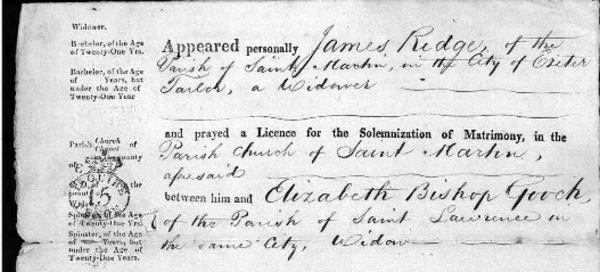 Widower.
Bachelor, of the Age
of Twenty-One Yrs.
Bachelor, of the Age
of Years, but
under the Age of
Twenty-One Year
Parish Church
Chapel
in the County
of
D of the
county of
Widow
Spinster, of the Age
of Twenty-One Yrs.
Spinster, of the Age
of Years, but
under the Age of
Twenty-One Years.
Appeared personally James Ridge, of the
Parish of Saint Martin, in the City of Exeter
Tailor, a Widower
and prayed a Licence for the Solemnization of Matrimony, in the
Parish Church of Saint Martin,
afresaid
between him and Elizabeth Bishop Gooch,
of the Parish of Saint Lawrence in
the same City, Widow